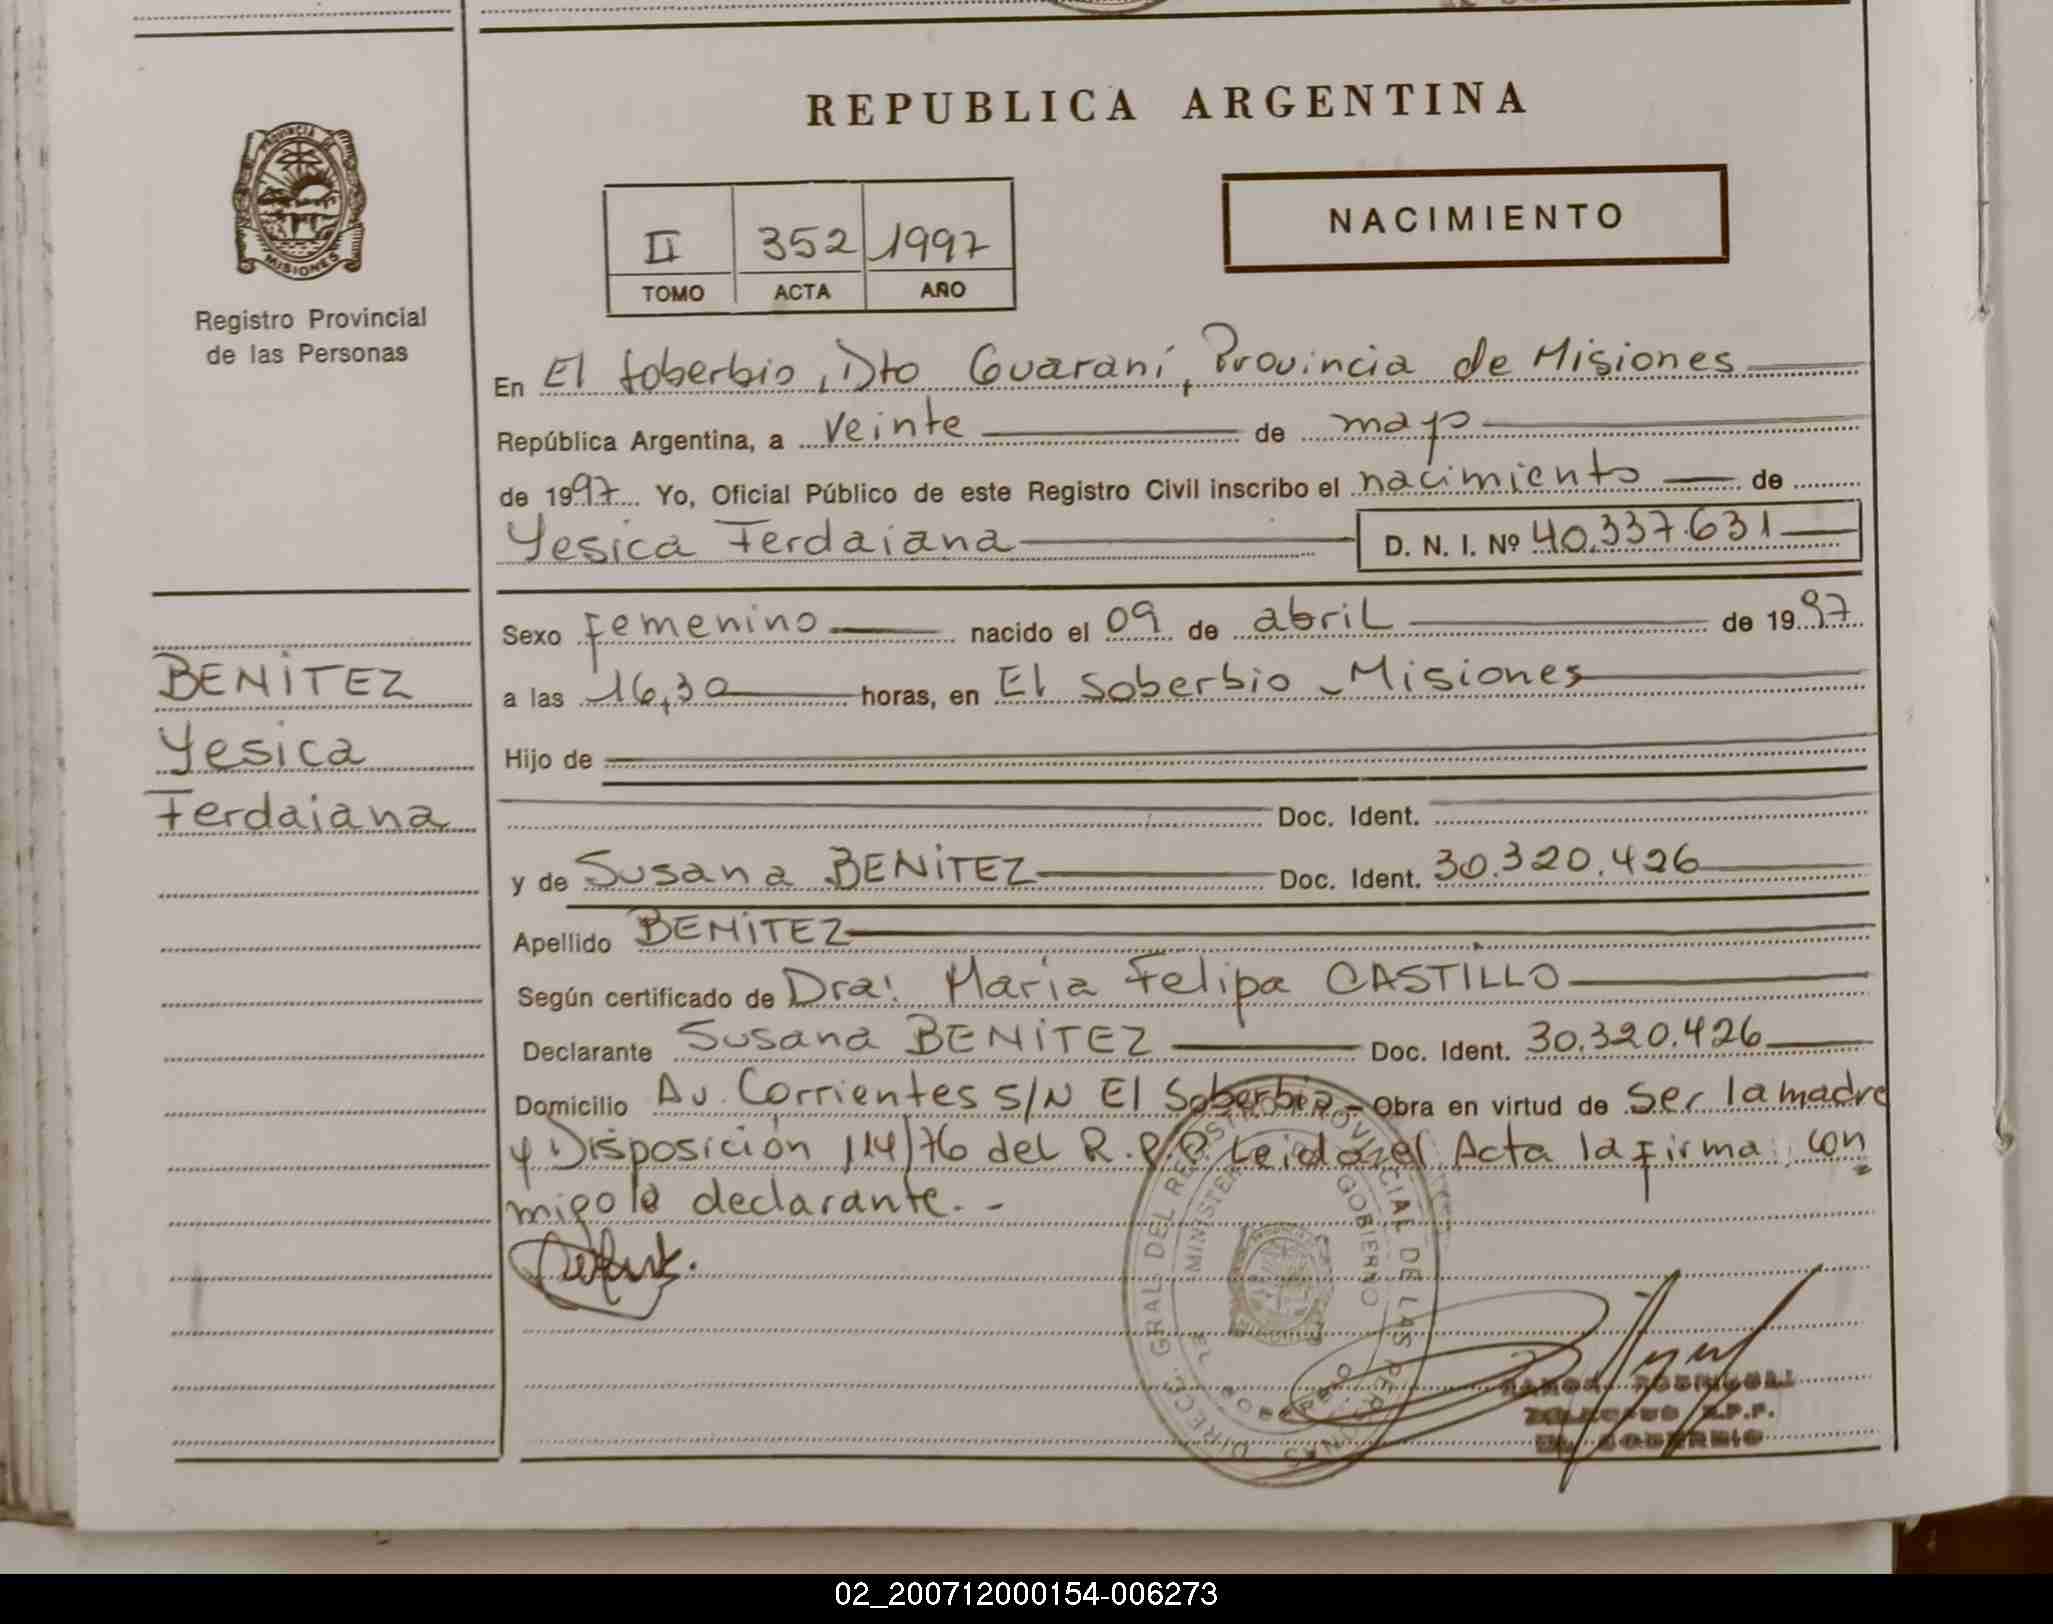 REPUBLICA ARGENTINA
PROVINCIA DE
MISIONES
Registro Provincial
de las Personas
II 352 1997
TOMO ACTA AÑO
NACIMIENTO
En El Soberbio, Dto Guaraní, Provincia de Misiones
República Argentina, a veinte de mayo
de 1997 Yo, Oficial Público de este Registro Civil inscribo el nacimiento de
Yesica Ferdaiana D. N. I. Nº 40.337.631
Sexo Femenino nacido el 09 de abril de 1997
a las 16,30 horas, en El Soberbio - Misiones
Hijo de
Doc. Ident.
y de Susana BENITEZ Doc. Ident. 30.320.426
Apellido BENITEZ
Según certificado de Dra: Maria Felipa CASTILLO
Declarante Susana BENITEZ Doc. Ident. 30.320.426
Domicilio Av. Corrientes S/N El Soberbio - Obra en virtud de ser la madre
y Disposición 114/76 del R.P.P. Leida el Acta la firma con
migo la declarante.-
BENITEZ
Yesica
Ferdaiana
DIREC. GRAL. DEL REGISTRO PROVINCIAL DE LAS PERSONAS
MINISTERIO DE GOBIERNO
R.P.P.
EL SOBERBIO
02_200712000154-006273